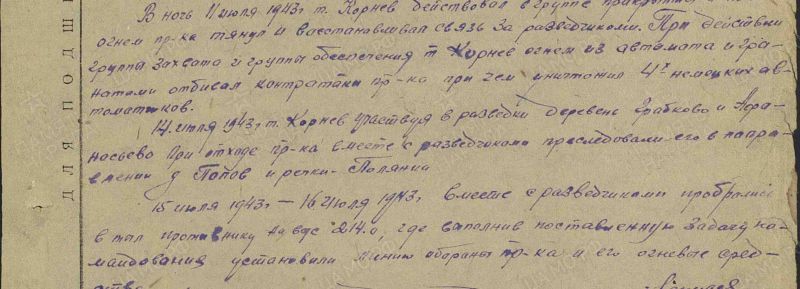 В ночь 11 июля 1943 г т. Корнев действовал в группе прикрытия
огнем пр-ка тянул и восстанавливал связь за разведчиками. При действии
группы захвата и группы обеспечения т Корнев огнем из автомата и гра-
натами отбивал контратаки пр-ка при чем уничтожил 4х немецких ав-
томатчиков.
14 июля 1943 г т. Корнев участвуя в разведки деревень Грабково и Афа-
насьево при отходе пр-ка вместе с разведчиками преследовали его в напра-
влении д Попов и речки Полянки
15 июля 1943 г — 16 июля 1943 г вместе с разведчиками пробрались
в тыл противнику на выс 214.0, где выполнив поставленную задачу ко-
мандования установили линию обороны пр-ка и его огневые сред-
ства
ДЛЯ ПОДШ